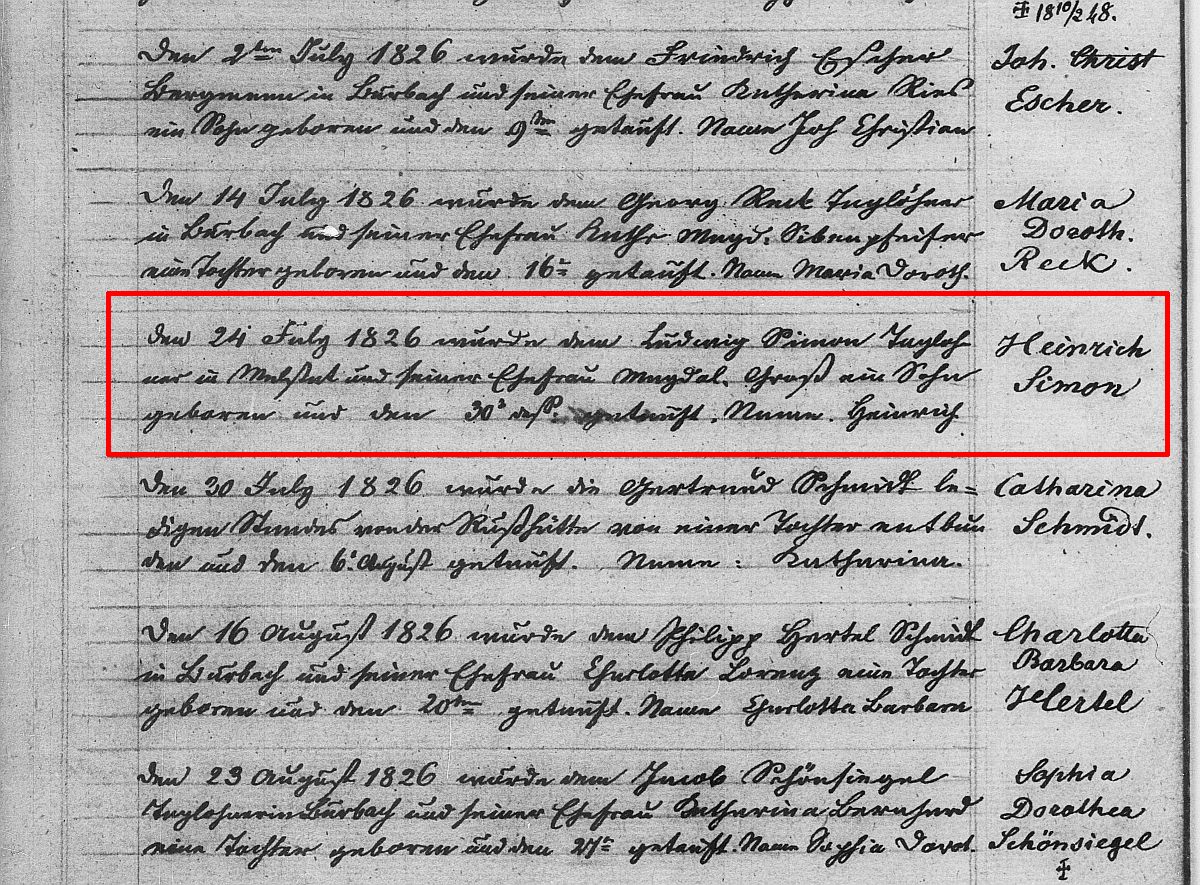 ✠ 18 10/2 48.
Den 2ten July 1826 wurde dem Friedrich Escher
Bergmann in Burbach und seiner Ehefrau Katharina Ries
ein Sohn geboren und den 9ten getauft. Name Joh Christian
Joh. Christ
Escher.
Den 14 July 1826 wurde dem Georg Reck Taglöhner
in Burbach und seiner Ehefrau Kathr Magd. Sibenpfeifer
eine Tochter geboren und den 16ten getauft. Name Maria Doroth.
Maria
Doroth.
Reck.
Den 24 July 1826 wurde dem Ludwig Simon Tagloh
ner in Malstat und seiner Ehefrau Magdal. Groß ein Sohn
geboren und den 30t deß. getauft. Name. Heinrich
Heinrich
Simon
Den 30 July 1826 wurde die Gertrud Schmidt le=
digen Standes von der Rußhütte von einer Tochter entbun
den und den 6t August getauft. Name: Katharina.
Catharina
Schmidt.
Den 16 August 1826 wurde dem Philipp Hertel Schmidt
in Burbach und seiner Ehefrau Charlotta Lorenz eine Tochter
geboren und den 20ten getauft. Name Charlotta Barbara
Charlotta
Barbara
Hertel
Den 23 August 1826 wurde dem Jacob Schönsiegel
Taglohner in Burbach und seiner Ehefrau Katharina Bernhard
eine Tochter geboren und den 27ten getauft. Name Sophia Dorot.
Sophia
Dorothea
Schönsiegel
✠